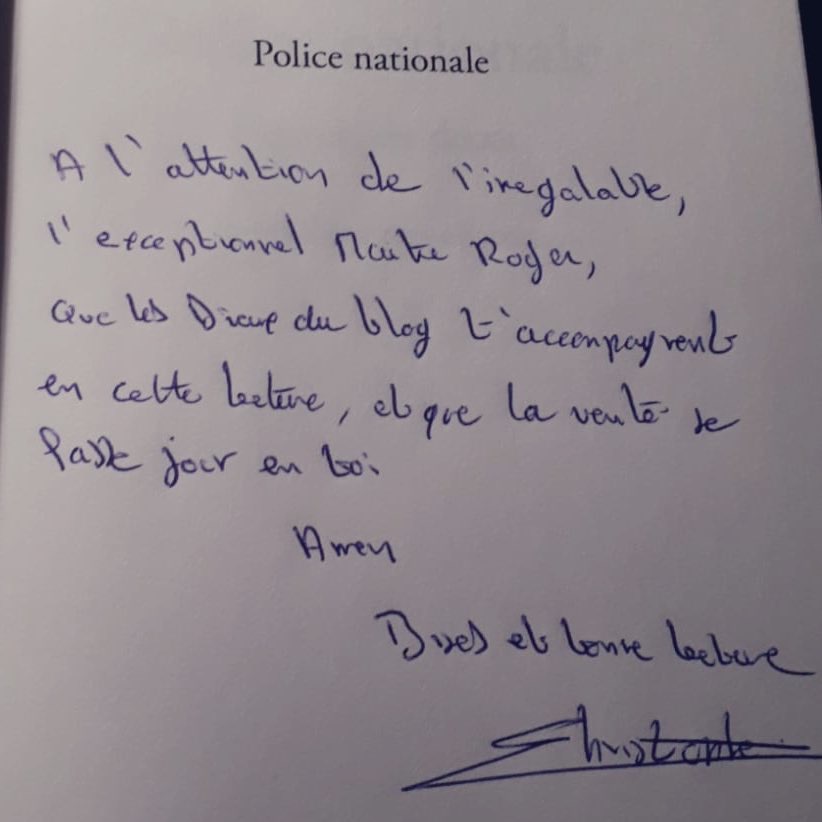 Police nationale
A l'attention de l'inegalable,
l'exceptionnel Maitre Roger,
Que les Dieux du blog t'accompagnent
en cette lecture, et que la verité se
fasse jour en toi.
Amen
Bises et bonne lecture
Christophe